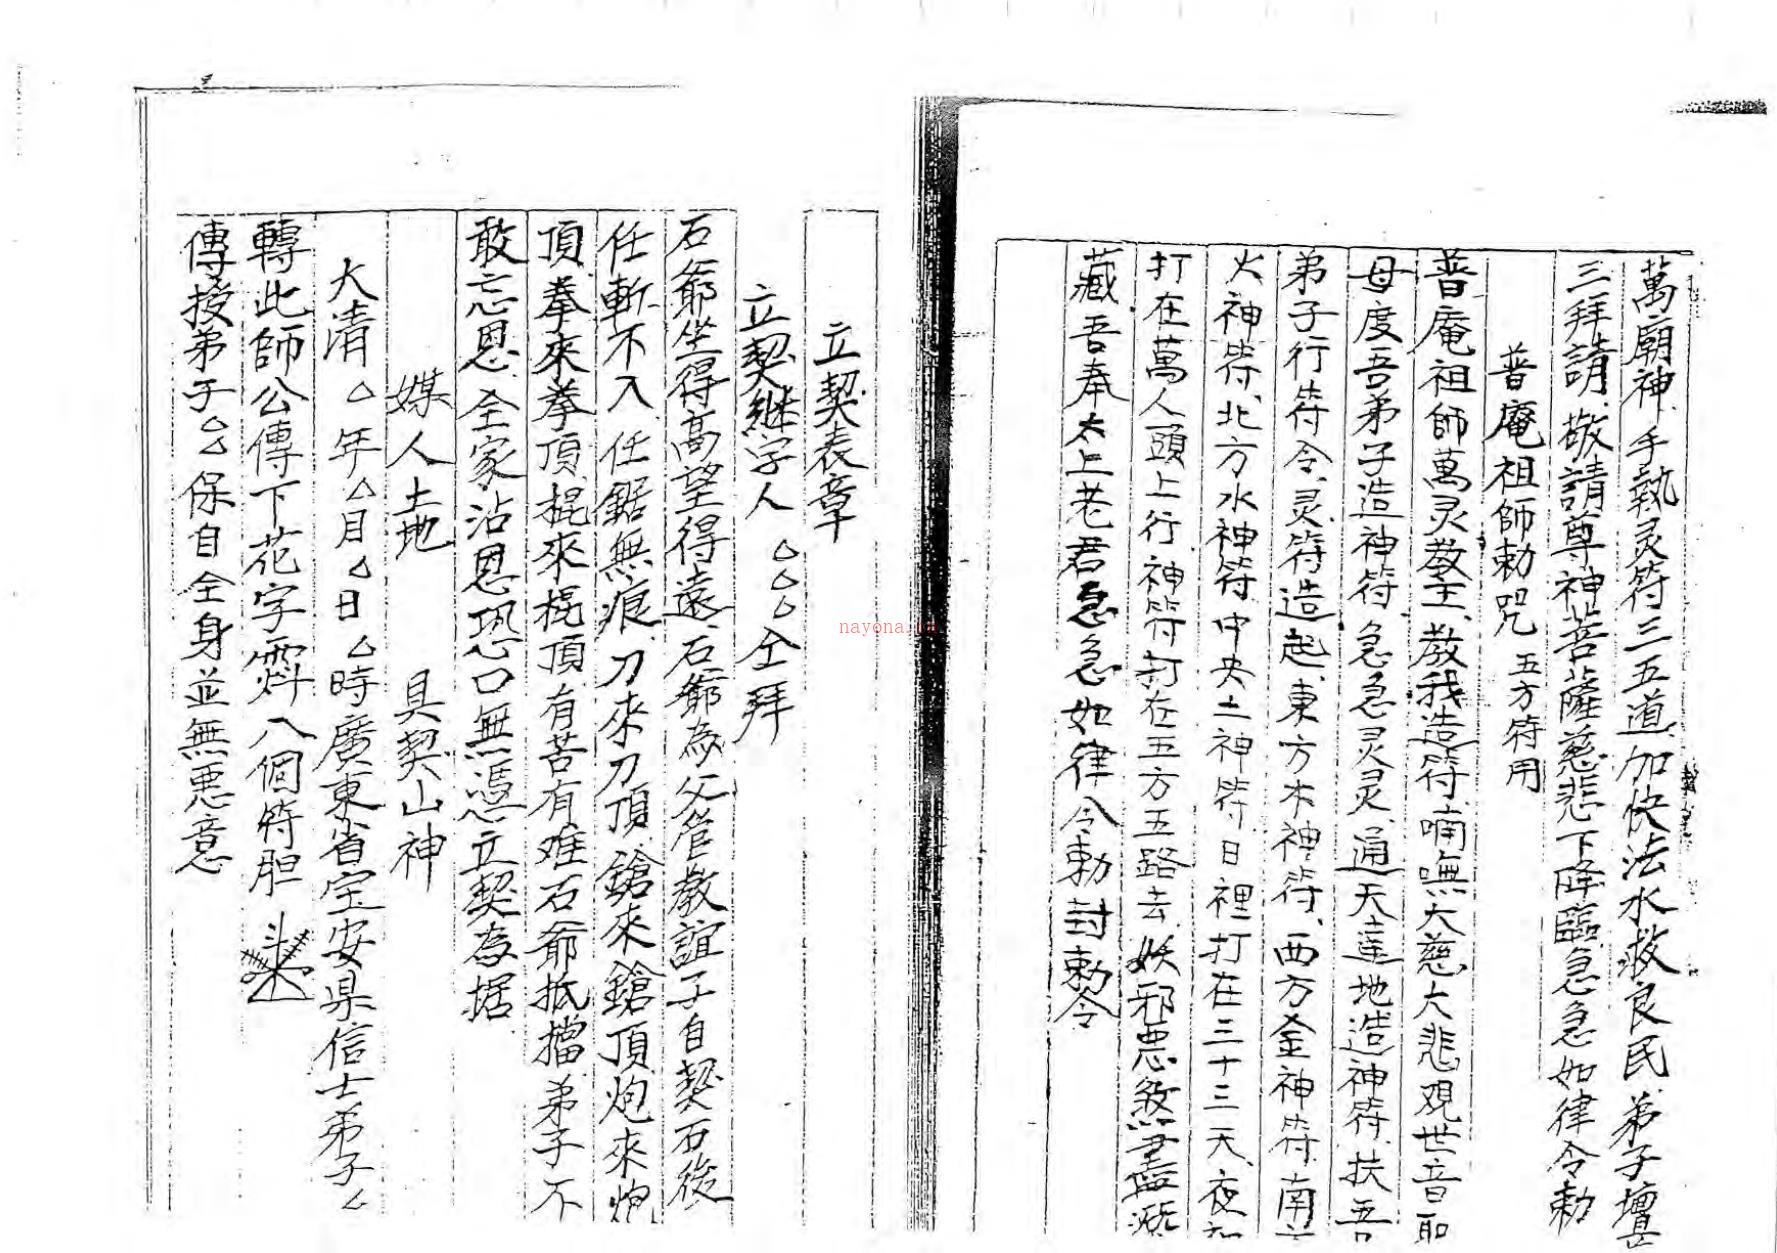 萬廟神手執灵符三五道加快法水救良民弟子壇
三拜請敬請尊神菩薩慈悲下降臨急急如律令勅
普庵祖師勅咒 五方符用
普庵祖師萬灵教主教我造符喃嘸大慈大悲观世音
母度吾弟子造神符急急灵灵通天達地造神符扶吾
弟子行符令灵符造起東方木神符西方金神符南
火神符北方水神符中央土神符日裡打在三十三天夜
打在萬人頭上行神符打在五方五路去妖邪悪煞盡
藏吾奉太上老君急急如律令勅封勅令
立契表章
立契継字人△△△仝拜
石爺坐得高望得遠石爺為父管教誼子自契石後
任斬不入任鋸無痕刀來刀頂鎗來鎗頂炮來炮
頂拳來拳頂棍來棍頂有苦有难石爺抵擋弟子不
敢忘恩全家沾恩恐口無憑立契為据
媒人土地 具契山神
大清△年△月△日△時廣東省宝安県信士弟子△
轉此師公傳下花字 八個符胆
傳授弟子△△保自全身並無悪意
nayona.cn